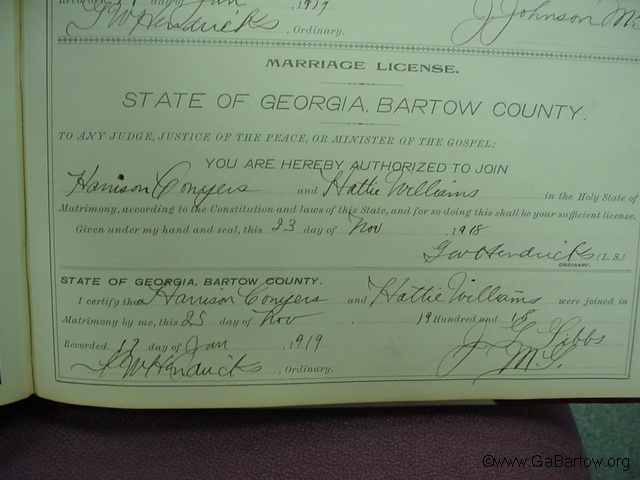 day of Jan , 1919
GW Hendricks , Ordinary. J Johnson M.
MARRIAGE LICENSE.
STATE OF GEORGIA, BARTOW COUNTY.
TO ANY JUDGE, JUSTICE OF THE PEACE, OR MINISTER OF THE GOSPEL:
YOU ARE HEREBY AUTHORIZED TO JOIN
Harrison Conyers and Hattie Williams in the Holy State of
Matrimony, according to the Constitution and laws of this State, and for so doing this shall be your sufficient license.
Given under my hand and seal, this 23 day of Nov , 1918
GW Hendricks (L. S.)
ORDINARY.
STATE OF GEORGIA, BARTOW COUNTY.
I certify that Harrison Conyers and Hattie Williams were joined in
Matrimony by me, this 25 day of Nov . 19 Hundred and 18
Recorded 17 day of Jan , 1919 J. G. Gibbs
GW Hendricks , Ordinary. M.G.
©www.GaBartow.org